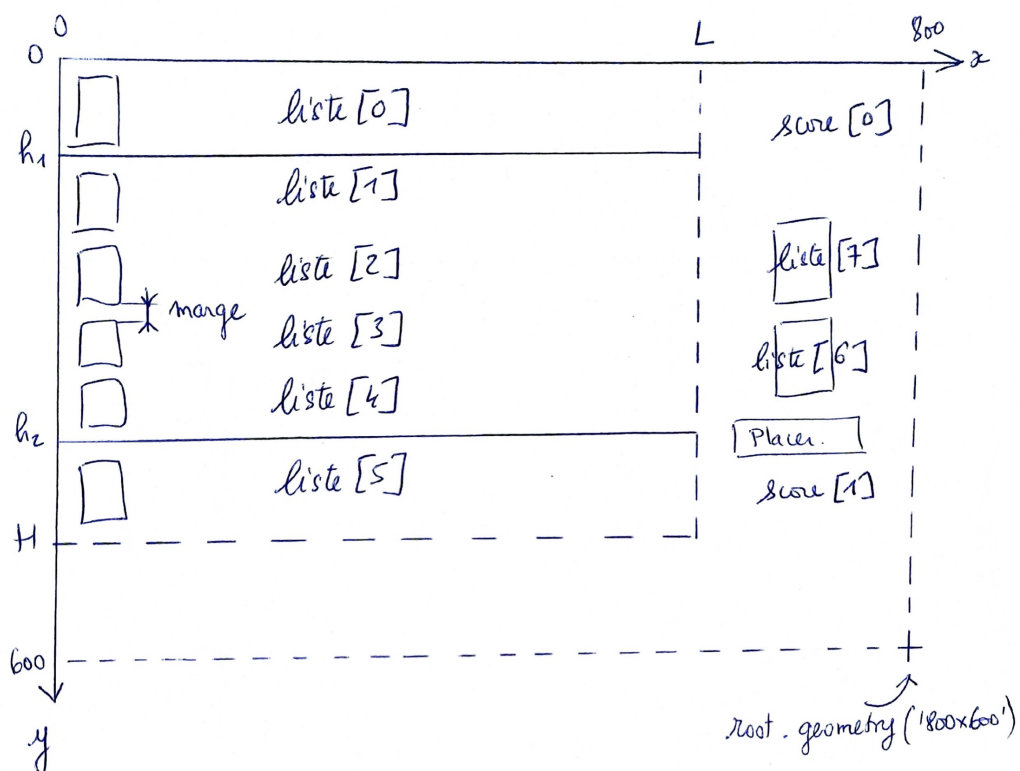 0 L 800
0 x
liste [0] score [0]
h1
liste [1]
liste [2] liste [7]
marge
liste [3] liste [6]
liste [4]
h2 Placer.
liste [5] score [1]
H
600
root. geometry ('800x600')
y